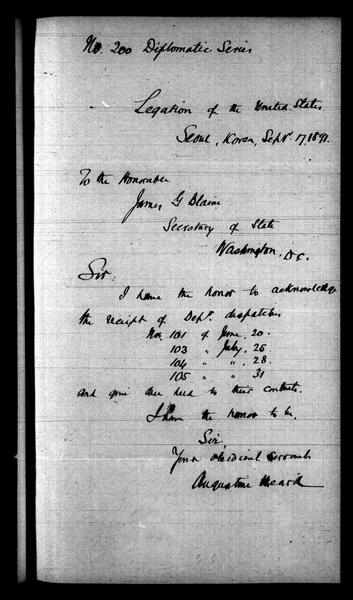 No. 200 Diplomatic Series
Legation of the United States
Seoul, Korea, Sept. 17, 1891.
To the Honorable
James G Blaine
Secretary of State
Washington, D.C.
Sir:
I have the honor to acknowledge
the receipt of Dept. despatches
Nos. 101 of June, 20.
103 " July, 25
104 " " , 28.
105 " " 31
and give due heed to their contents.
I have the honor to be,
Sir,
Your obedient servant
Augustine Heard